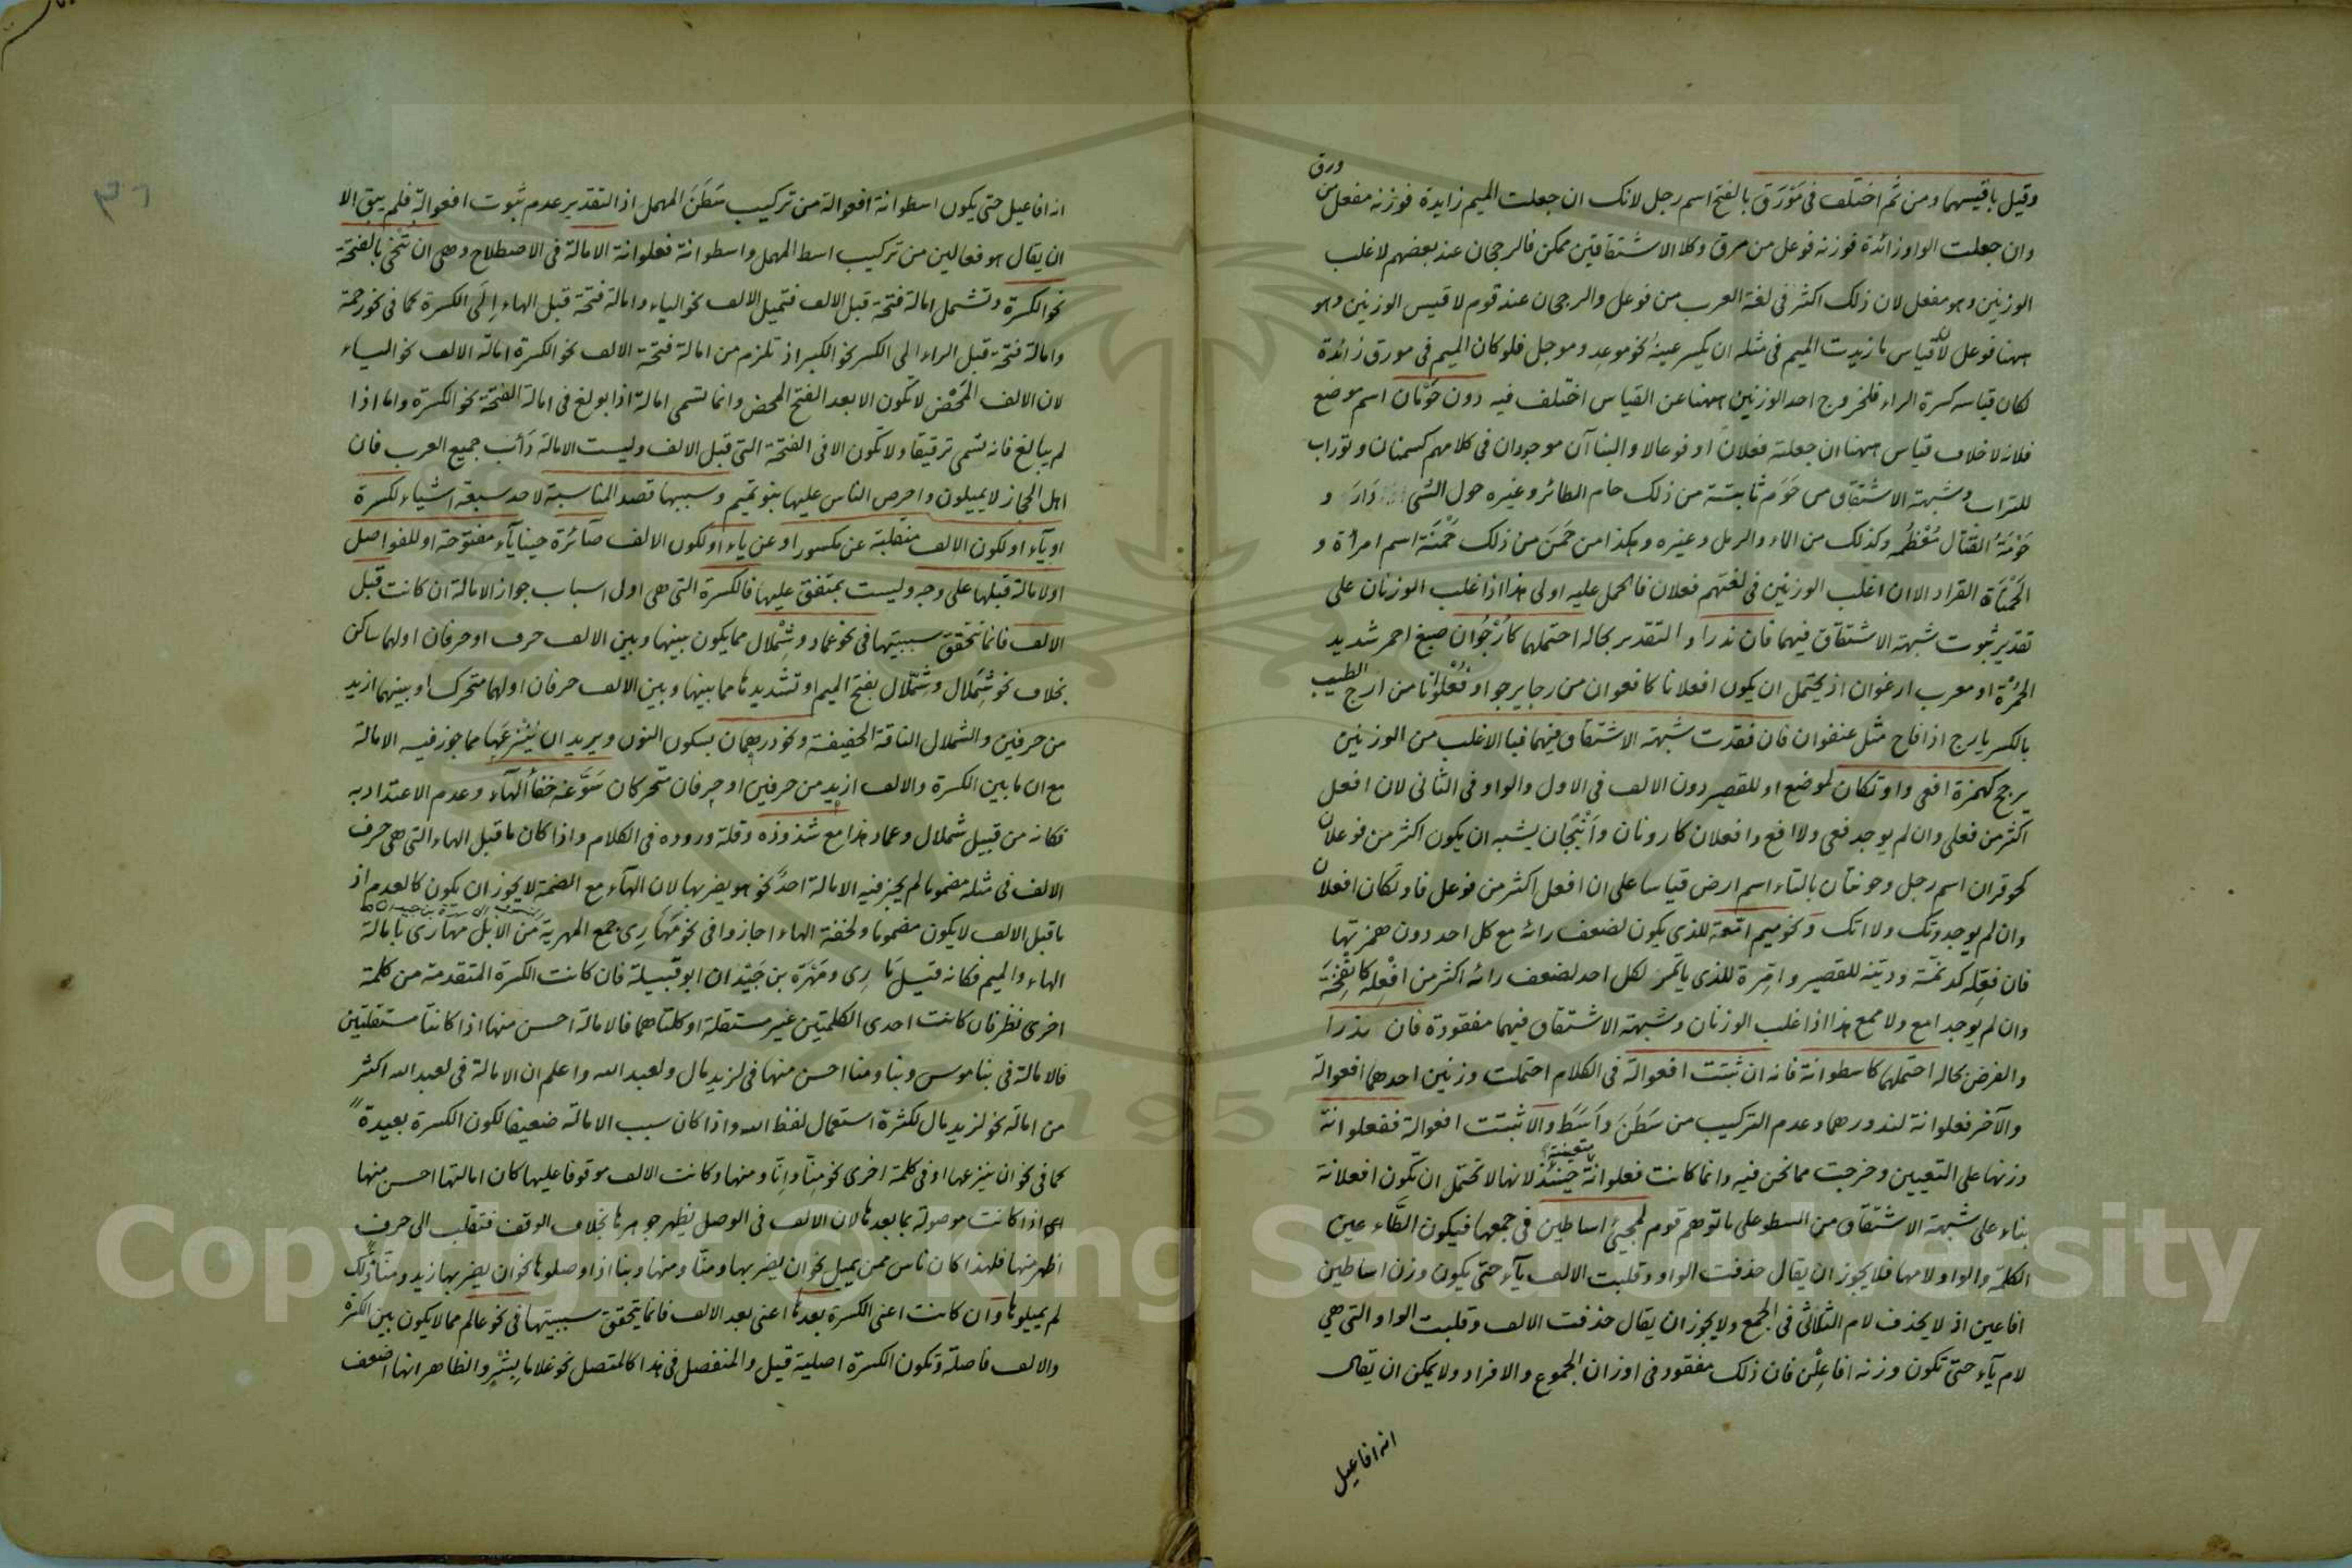 ورق
وقيل باقيسهما ومن ثم اختلف فى مَوْرَق بالفتح اسم رجل لانك ان جعلت الميم زايدة فوزنه مفعل من
وان جعلت الواو زائدة فوزنه فوعل من مرق وكلا الاشتقاقين ممكن فالرجحان عند بعضهم لاغلب
الوزنين وهو مفعل لان ذلك اكثر فى لغة العرب من فوعل والرجحان عند قوم لاقيس الوزنين وهو
ههنا فوعل لان قياس ما زيدت الميم فى مثله ان يكسر عينه نحو موعد وموجل فلو كان الميم فى مورق زائدة
لكان قياسه كسرة الراء فلخروج احد الوزنين ههنا عن القياس اختلف فيه دون حَوْمَان اسم موضع
فلانه لاخلاف قياس ههنا ان جعلته فعلان او فوعالا والبناآن موجودان فى كلامهم كسمنان وتوراب
للتراب وشبهة الاشتقاق من حَوَم ثابتة من ذلك حام الطائر وغيره حول الشى دَارَ و
حَوْمَةُ القتال مُعْظَمُه وكذلك من الماء والرمل وغيره وهكذا من حَمَنَ من ذلك حَمْنَة اسم امراة و
الحَمْنَاة القراد الا ان اغلب الوزنين فى لغتهم فعلان فالحمل عليه اولى هذا اذا غلب الوزنان على
تقدير ثبوت شبهة الاشتقاق فيهما فان ندرا والتقدير بحاله احتملهما كاُرْجُوَان صبغ احمر شديد
الحُمْرَة او معرب ارغوان اذ يحتمل ان يكون افعلانا كافعوان من رجا يرجو او فُعْلُوَانًا من ارج الطيب
بالكسر يارج اذا فاح مثل عنفوان فان فقدت شبهة الاشتقاق فيهما فبالاغلب من الوزنين
يرجح كهمزة افعى واوتكان لموضع او للقصير دون الالف فى الاول والواو فى الثانى لان افعل
اكثر من فعلى وان لم يوجد فعى ولا افع وافعلان كارونان وأَنْبَجَان يشبه ان يكون اكثر من فوعلان
كحوقران اسم رجل وحوتنان بالتاء اسم ارض قياسا على ان افعل اكثر من فوعل فاوتكان افعلان
وان لم يوجد وتك ولا اتك وكو ميم امّعة للذى يكون لضعف رائه مع كل احد دون همزتها
فان فِعّله كدِنّمة ودِنّبة للقصير وامّرة للذى ياتمر لكل احد لضعف رائه اكثر من افْعلة كانْفَحة
وان لم يوجد امع ولا ممع هذا اذا غلب الوزنان وشبهة الاشتقاق فيهما مفقودة فان ندرا
والفرض بحاله احتملهما كاسطوانة فانه ان ثبتت افعوالة فى الكلام احتملت وزنين احدهما افعوالة
والآخر فعلوانة لندورهما وعدم التركيب من سَطَنَ وأَسَطَ والا ثبتت افعوالة ففعلوانة
متعينة
وزنها على التعيين وخرجت مما نحن فيه وانما كانت فعلوانة حينئذ لانها لا تحتمل ان تكون افعلانة
بناء على شبهة الاشتقاق من السطو على ما توهم قوم لمجيئ اساطين فى جمعها فيكون الطاء عين
الكلمة والواو لامها فلا يجوز ان يقال حذفت الواو وقلبت الالف يآء حتى يكون وزن اساطين
افاعين اذ لا يحذف لام الثلاثى فى الجمع ولا يجوز ان يقال حذفت الالف وقلبت الواو التى هى
لام يآء حتى تكون وزنه افاعِلْن فان ذلك مفقود فى اوزان الجموع والافراد ولا يمكن ان يقال
انه افاعيل
٣٦
انه افاعيل حتى يكون اسطوانة افعوالة من تركيب سَطَنَ المهمل اذ التقدير عدم ثبوت افعوالة فلم يبق الا
ان يقال هو فعالين من تركيب اسط المهمل واسطوانة فعلوانة الامالة فى الاصطلاح وهى ان تنحى بالفتحة
نحو الكسرة وتشمل امالة فتحة قبل الالف فتميل الالف نحو الياء وامالة فتحة قبل الهاء إلى الكسرة كما فى نحو رحمة
وامالة فتحة قبل الراء الى الكسر نحو الكبر اذ تلزم من امالة فتحة الالف نحو الكسرة امالة الالف نحو الياء
لان الالف المَحْض لا تكون الا بعد الفتح المحض وانما تسمى امالة اذا بولغ فى امالة الفتحة نحو الكسرة واما اذا
لم يبالغ فانه تسمى ترقيقا ولا تكون الا فى الفتحة التى قبل الالف وليست الامالة دَأْبَ جميع العرب فان
اهل الحجاز لا يميلون واحرص الناس عليها بنو تميم وسببها قصد المناسبة لاحد سبعة اشياء لكسرة
او يآء او لكون الالف منقلبة عن مكسور او عن ياء او لكون الالف صآئرة حينا يآء مفتوحة او للفواصل
او لامالة قبلها على وجه وليست بمتفق عليها فالكسرة التى هى اول اسباب جواز الامالة ان كانت قبل
الالف فانما تتحقق سببيتها فى نحو عماد وشِمْلال مما يكون بينها وبين الالف حرف او حرفان اولهما ساكن
بخلاف نحو شِمَلال وشِمّلال بفتح الميم او تشديدها مما بينها وبين الالف حرفان اولهما متحرك او بينهما ازيد
من حرفين والشملال الناقة الخفيفة ونحو درهمان بسكون النون ويريد ان يَنْزِعَها مما جوز فيه الامالة
مع ان ما بين الكسرة والالف ازيد من حرفين او حرفان متحركان سَوَّغَه خفاء الهآء وعدم الاعتداد به
فكانه من قبيل شملال وعماد هذا مع شذوذه وقلة وروده فى الكلام واذا كان ما قبل الهاء التى هى حرف
الالف فى مثله مضموما لم يجز فيه الامالة احدٌ نحو هو يضربها لان الهآء مع الضمة لا يجوز ان يكون كالعدم اذ
ما قبل الالف لا يكون مضموما ولخفة الهاء اجازوا فى نحو مَهَارِى جمع المهرية من الابل مهارى بامالة
الهاء والميم فكانه قيل مَارِى ومَهْرَة بن حَيْدان ابو قبيلة فان كانت الكسرة المتقدمة من كلمة
اخرى نظر فان كانت احدى الكلمتين غير مستقلة او كلتاهما فالامالة احسن منها اذا كانتا مستقلتين
فالامالة فى بنا موس وبنا ومنا احسن منها فى لزيد مال ولعبد الله واعلم ان الامالة فى لعبد الله اكثر
من امالة نحو لزيد مال لكثرة استعمال لفظ الله واذا كان سبب الامالة ضعيفا لكون الكسرة بعيدة
كما فى نحو ان ينزعها او فى كلمة اخرى نحو مِنّا وإنّا ومنها وكانت الالف موقوفا عليها كان امالتها احسن منها
اى اذا كانت موصولة بما بعدها لان الالف فى الوصل يظهر جوهرها بخلاف الوقف فتقلب الى حرف
اظهر منها فلهذا كان ناس ممن يميل نحو ان يضربها ومنّا ومنها وبنا اذا وصلوها نحو ان يضربها زيد ومنّا ذلك
لم يميلوها وان كانت اعنى الكسرة بعدها اعنى بعد الالف فانما يتحقق سببيتها فى نحو عالم مما لا يكون بين الكسرة
والالف فاصلة وتكون الكسرة اصلية قيل والمنفصل فى هذا كالمتصل نحو غلاما بِشْرٍ والظاهر انها اضعف
1957
Copyright © King Saud University